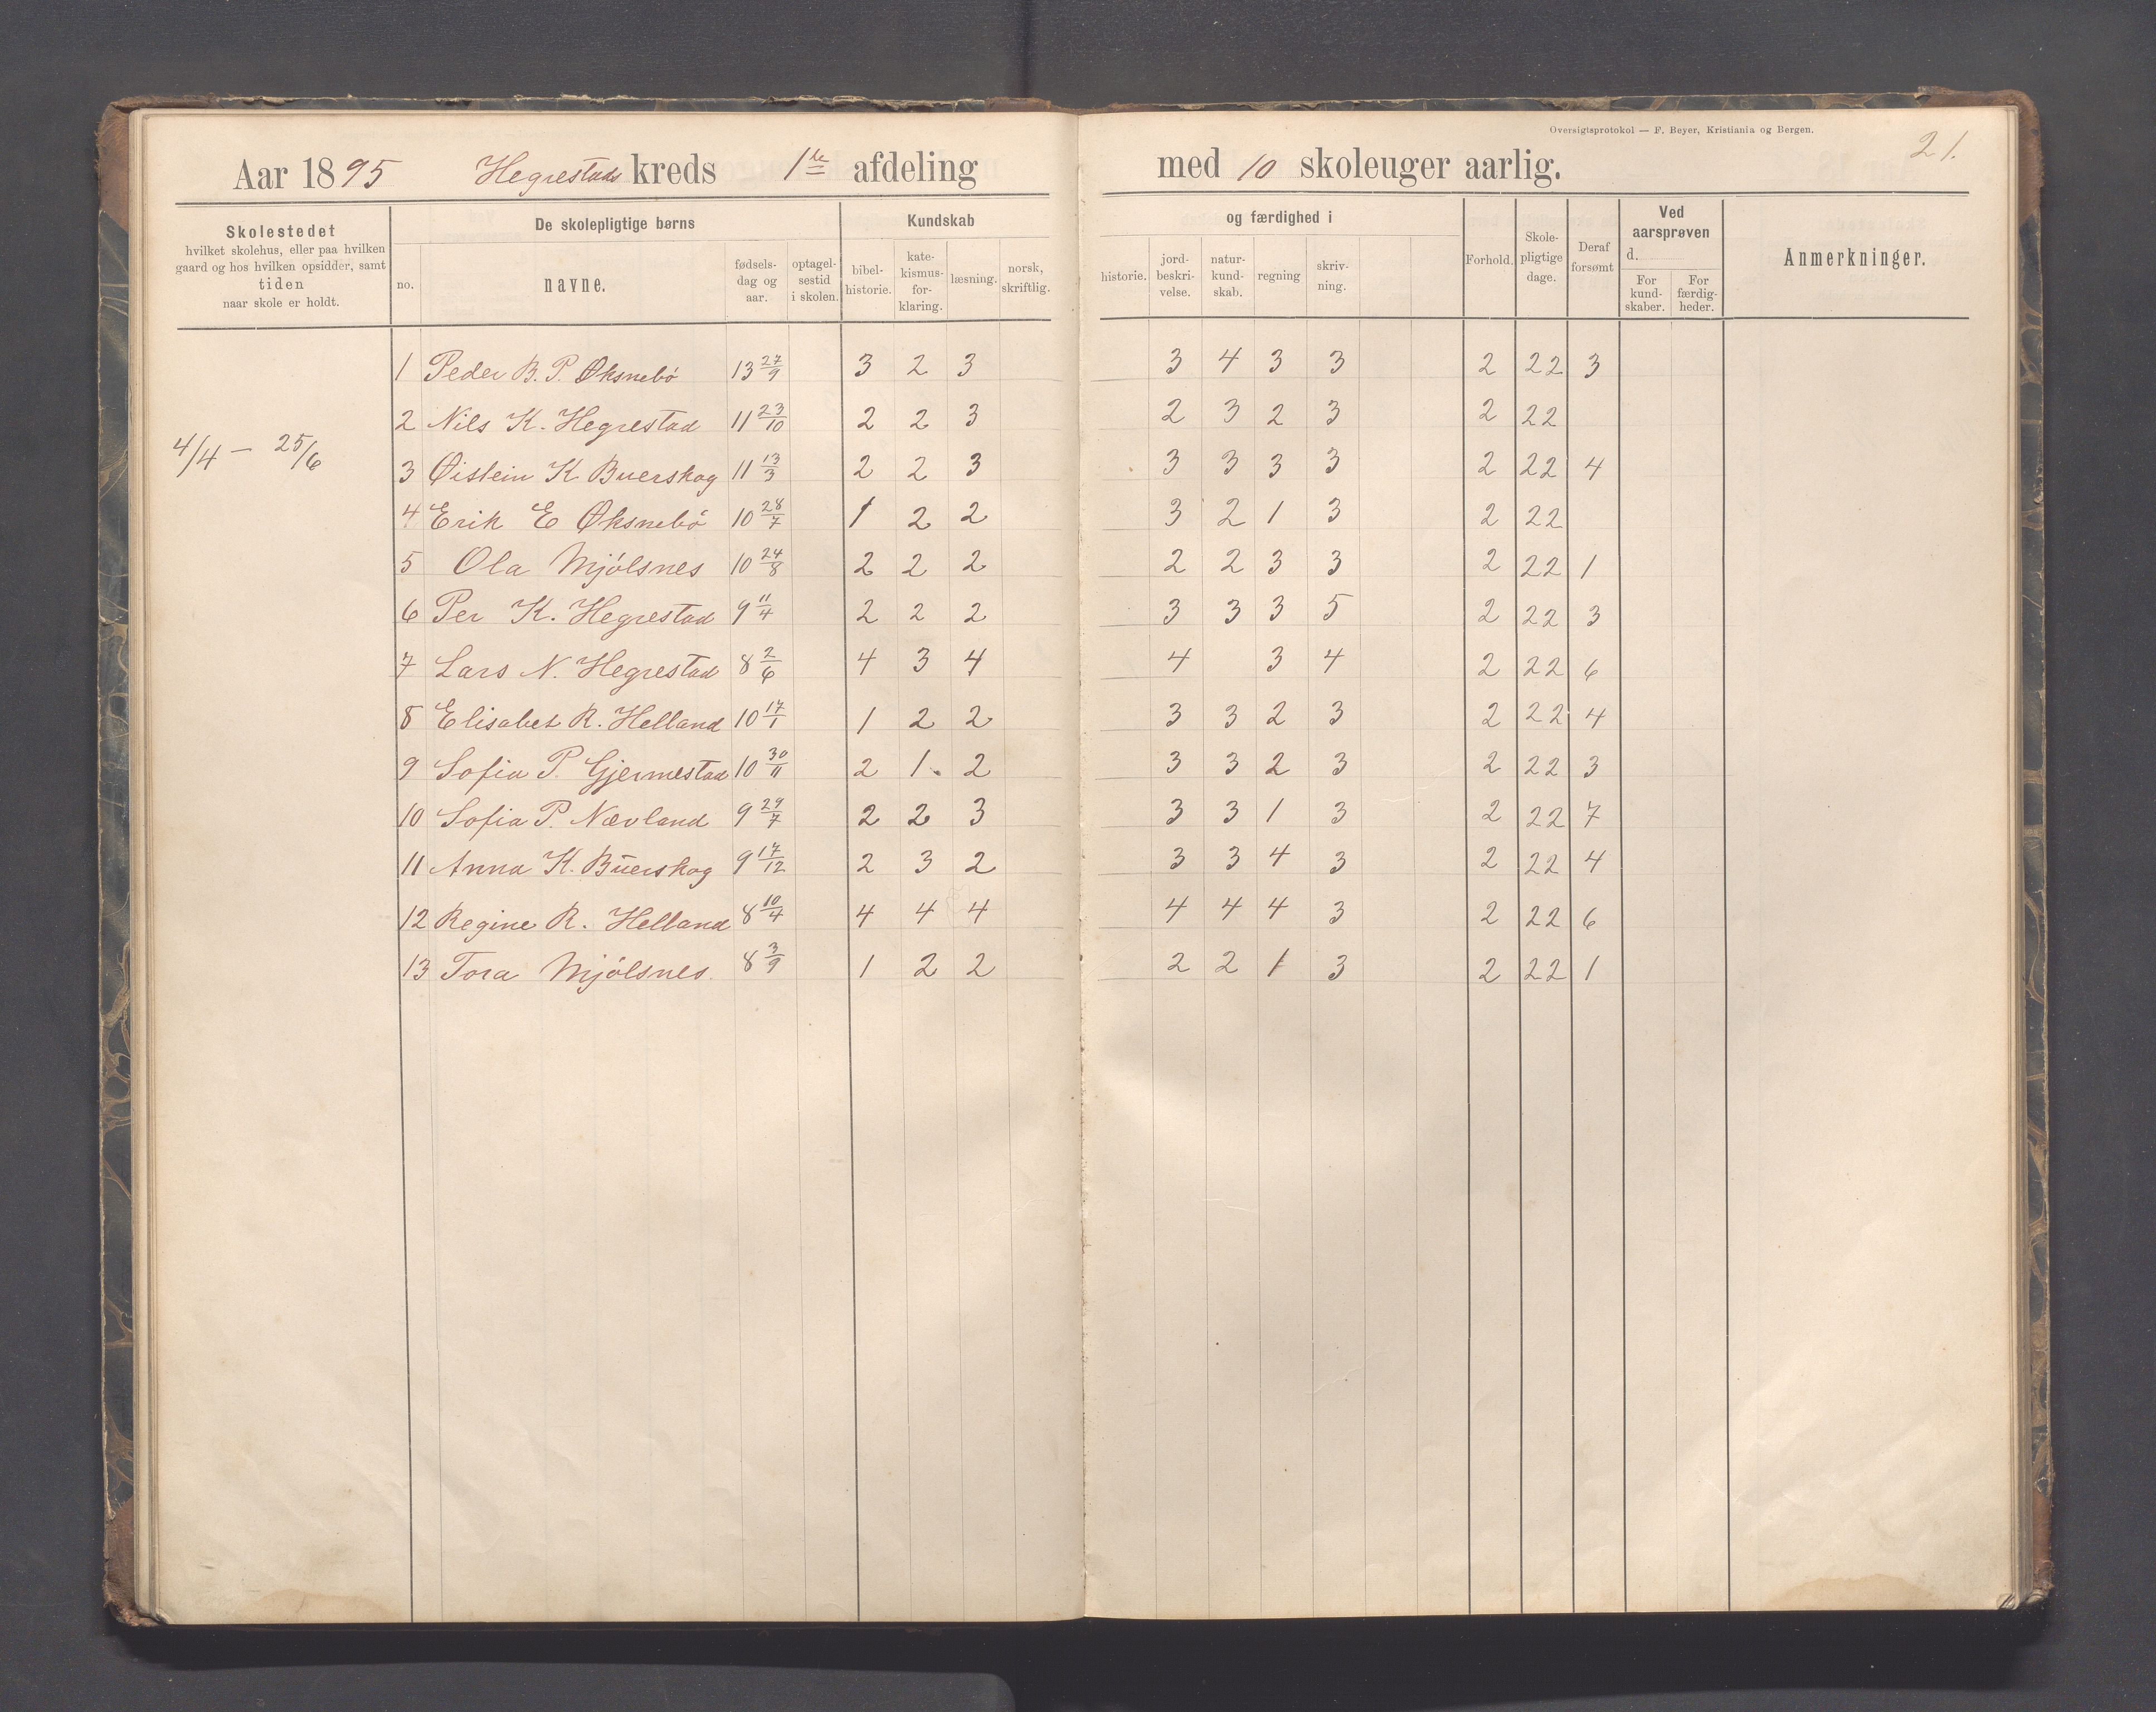 Oversigtsprotokol — F. Beyer, Kristiania og Bergen.
21.
Aar 1895 Hegrestads kreds 1ste afdeling med 10 skoleuger aarlig.
Skolestedet hvilket skolehus, eller paa hvilken gaard og hos hvilken opsidder, samt tiden naar skole er holdt.
De skolepligtige børns
no. navne. fødselsdag og aar. optagelsestid i skolen.
Kundskab og færdighed i
bibelhistorie. katekismusforklaring. læsning. norsk, skriftlig. historie. jordbeskrivelse. naturkundskab. regning skrivning.
Forhold. Skolepligtige dage. Deraf forsømt
Ved aarsprøven d.
For kundskaber. For færdigheder.
Anmerkninger.
4/4 — 25/6
1 Peder B. P. Øksnebö 13 27/9 3 2 3 3 4 3 3 2 22 3
2 Nils K. Hegrestad 11 23/10 2 2 3 2 3 2 3 2 22
3 Øistein K Buerskog 11 13/3 2 2 3 3 3 3 3 2 22 4
4 Erik E Øksnebö 10 28/7 1 2 2 3 2 1 3 2 22
5 Ola Mjölsnes 10 24/8 2 2 2 2 2 3 3 2 22 1
6 Per K. Hegrestad 9 11/4 2 2 2 3 3 3 5 2 22 3
7 Lars N. Hegrestad 8 2/6 4 3 4 4 3 4 2 22 6
8 Elisabet R. Helland 10 17/1 1 2 2 3 3 2 3 2 22 4
9 Sofia P. Gjermestad 10 30/11 2 1. 2 3 3 2 3 2 22 3
10 Sofia P. Nævland 9 29/7 2 2 3 3 3 1 3 2 22 7
11 Anna K. Buerskog 9 17/12 2 3 2 3 3 4 3 2 22 4
12 Regine R. Helland 8 10/4 4 4 4 4 4 4 3 2 22 6
13 Tora Mjölsnes. 8 3/9 1 2 2 2 2 1 3 2 22 1